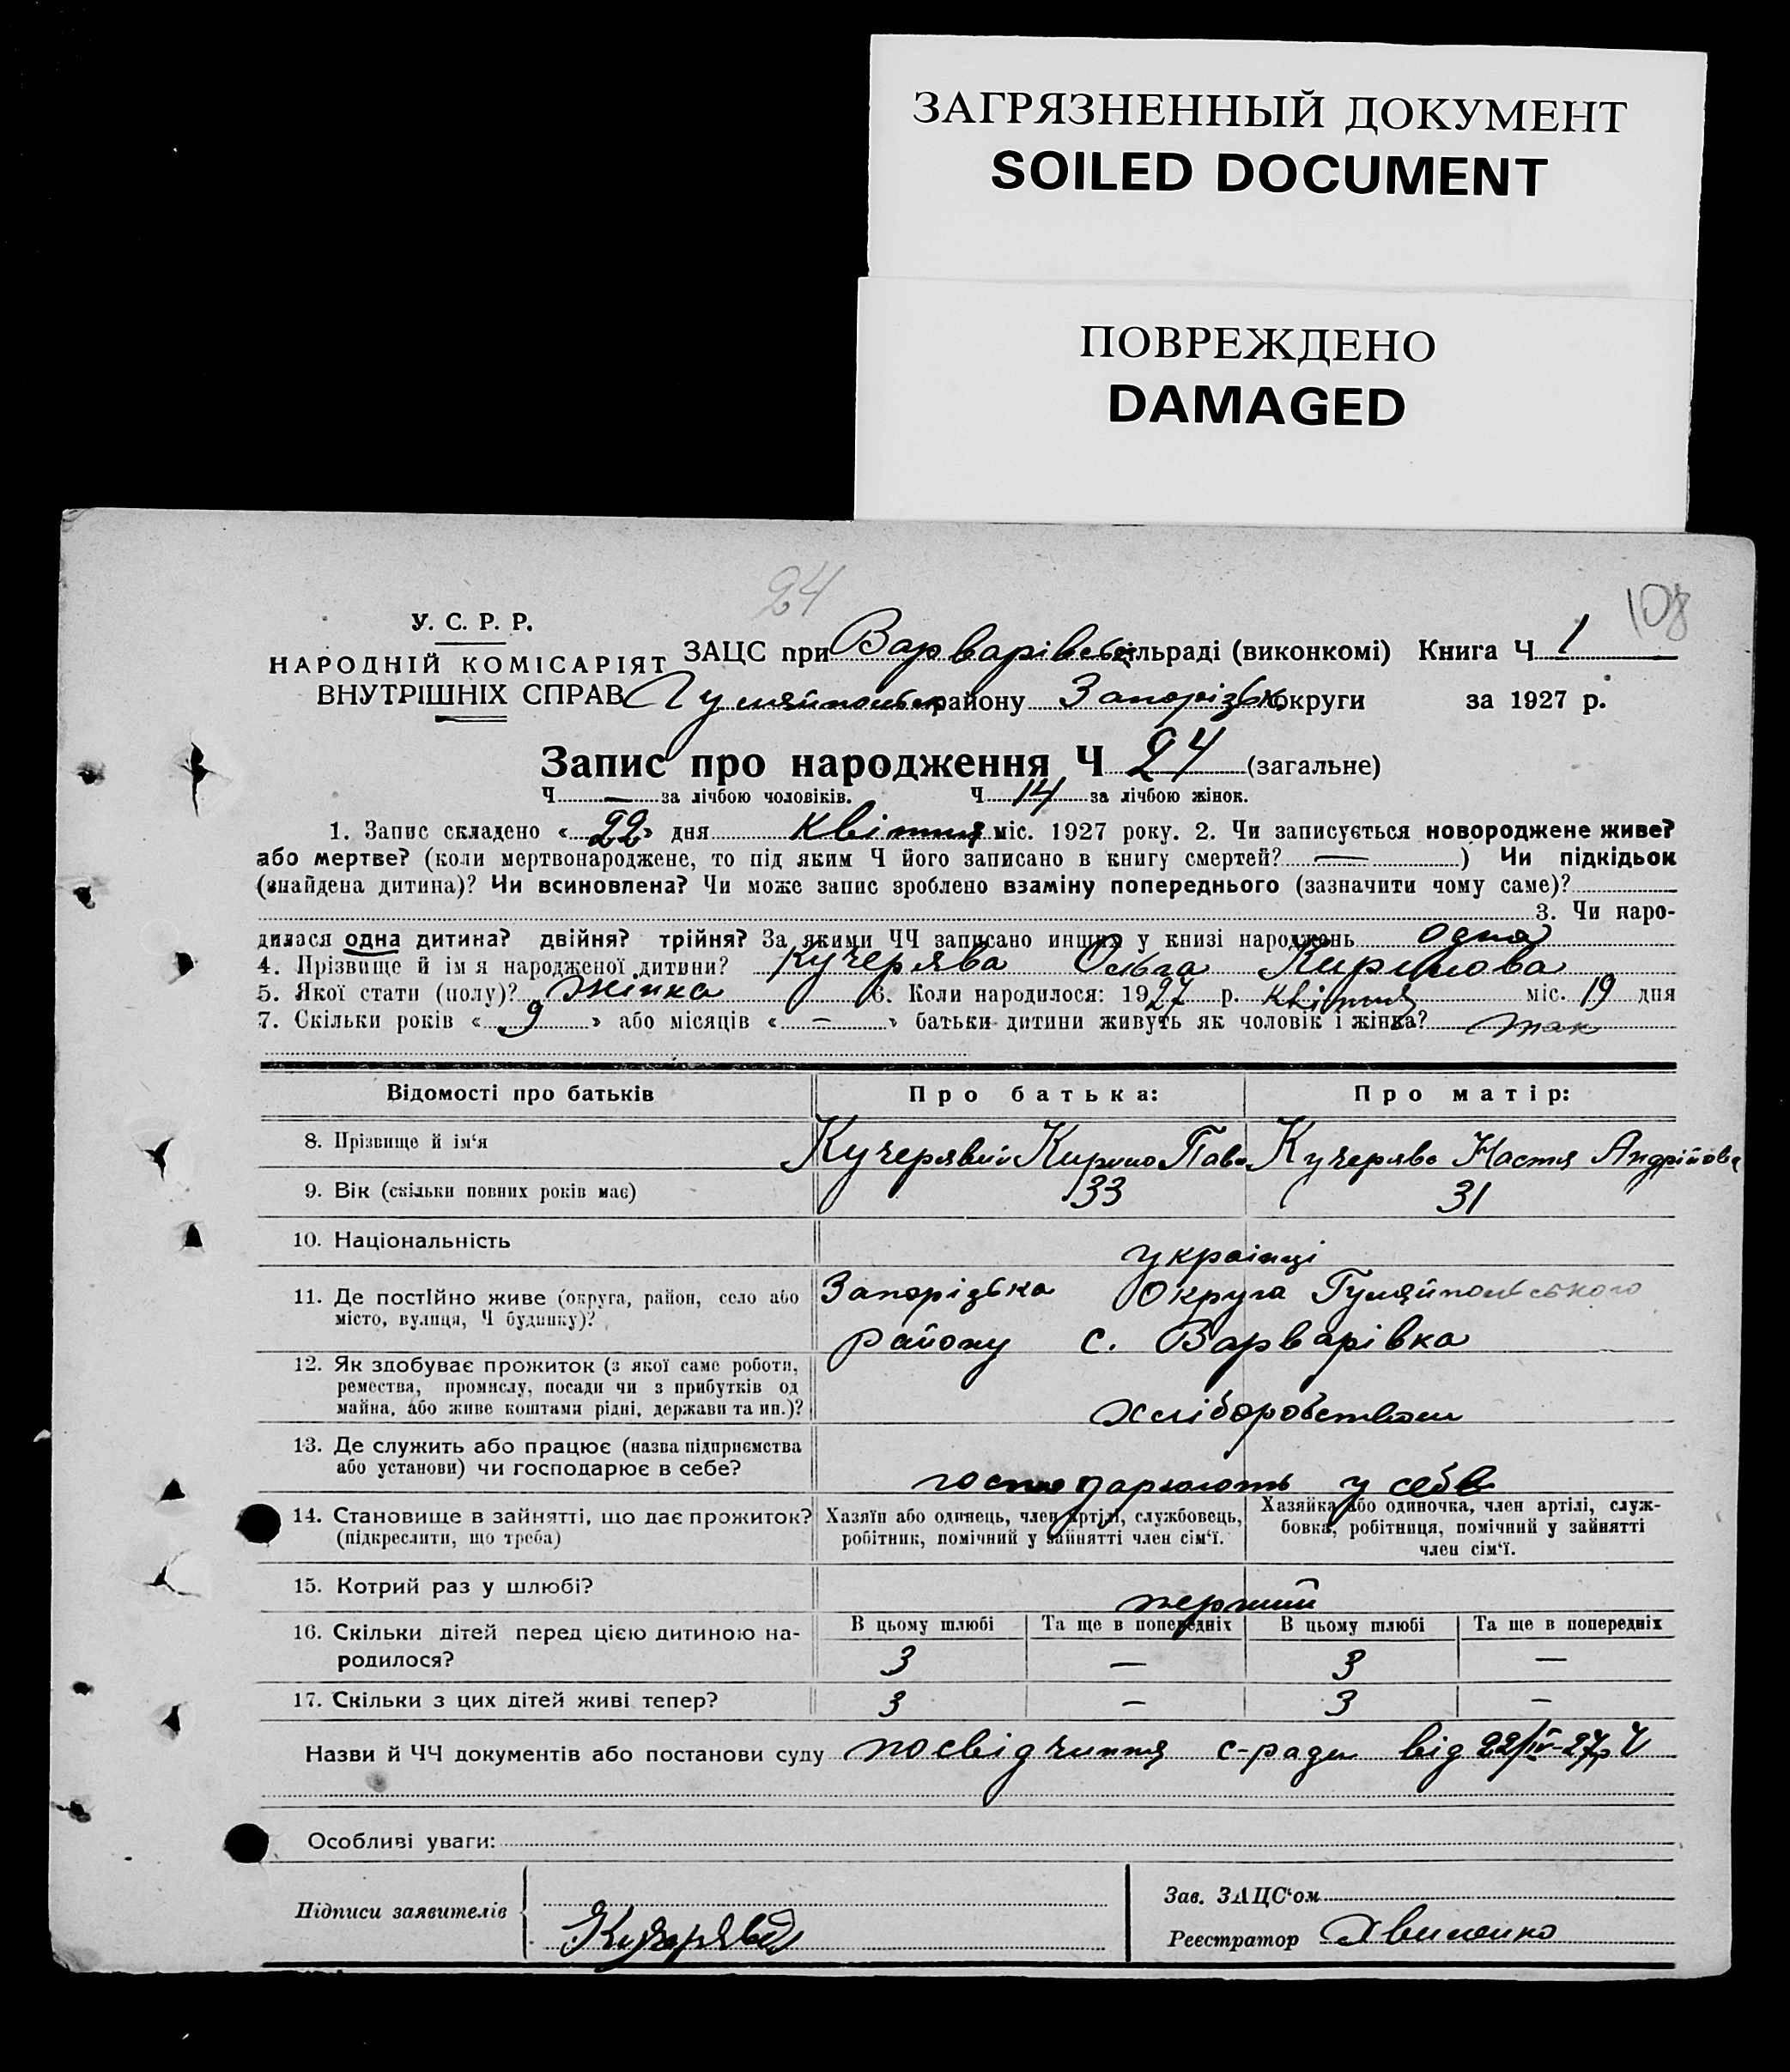 ЗАГРЯЗНЕННЫЙ ДОКУМЕНТ
SOILED DOCUMENT
ПОВРЕЖДЕНО
DAMAGED
24
108
У. С. Р. Р.
НАРОДНІЙ КОМІСАРІЯТ
ВНУТРІШНІХ СПРАВ
ЗАЦС при Варварівськ сільраді (виконкомі) Книга Ч 1
Гуляйпольськ району Запорізьк округи за 1927 р.
Запис про народження Ч 24 (загальне)
Ч — за лічбою чоловіків. Ч 14 за лічбою жінок.
1. Запис складено « 22 » дня квітня міс. 1927 року. 2. Чи записується новороджене живе?
або мертве? (коли мертвонароджене, то під яким Ч його записано в книгу смертей? — ) Чи підкідьок
(знайдена дитина)? Чи всиновлена? Чи може запис зроблено взаміну попереднього (зазначити чому саме)?
3. Чи наро-
дилася одна дитина? двійня? трійня? За якими ЧЧ записано инших у книзі народжень одна
4. Прізвище й ім я народженої дитини? Кучерява Ольга Кирилова
5. Якої стати (полу)? жінка 6. Коли народилося: 1927 р. квітня міс. 19 дня
7. Скільки років « 9 » або місяців « — » батьки дитини живуть як чоловік і жінка? так
Відомості про батьків Про батька: Про матір:
8. Прізвище й ім‘я Кучерявий Кирило Павл Кучерява Настя Андрійова
9. Вік (скільки повних років має) 33 31
10. Національність українці
11. Де постійно живе (округа, район, село або Запорізька Округа Гуляйпольського
місто, вулиця, Ч будинку)? району с. Варварівка
12. Як здобуває прожиток (з якої саме роботи,
ремества, промислу, посади чи з прибутків од
майна, або живе коштами рідні, держави та ин.)? хліборобством
13. Де служить або працює (назва підприємства
або установи) чи господарює в себе? господарюють у себе
14. Становище в зайнятті, що дає прожиток? Хазяїн або одинець, член артілі, службовець, Хазяйка або одиночка, член артілі, служ-
(підкреслити, що треба) робітник, помічний у зайнятті член сім‘ї. бовка, робітниця, помічний у зайнятті
член сім‘ї.
15. Котрий раз у шлюбі? перший
16. Скільки дітей перед цією дитиною на- В цьому шлюбі Та ще в попередніх В цьому шлюбі Та ще в попередніх
родилося? 3 — 3 —
17. Скільки з цих дітей живі тепер? 3 — 3 —
Назви й ЧЧ документів або постанови суду посвідчиння с-ради від 22/IV-27р Ч
Особливі уваги:
Зав. ЗАЦС‘ом
Підписи заявителів
Кучерявий Реєстратор